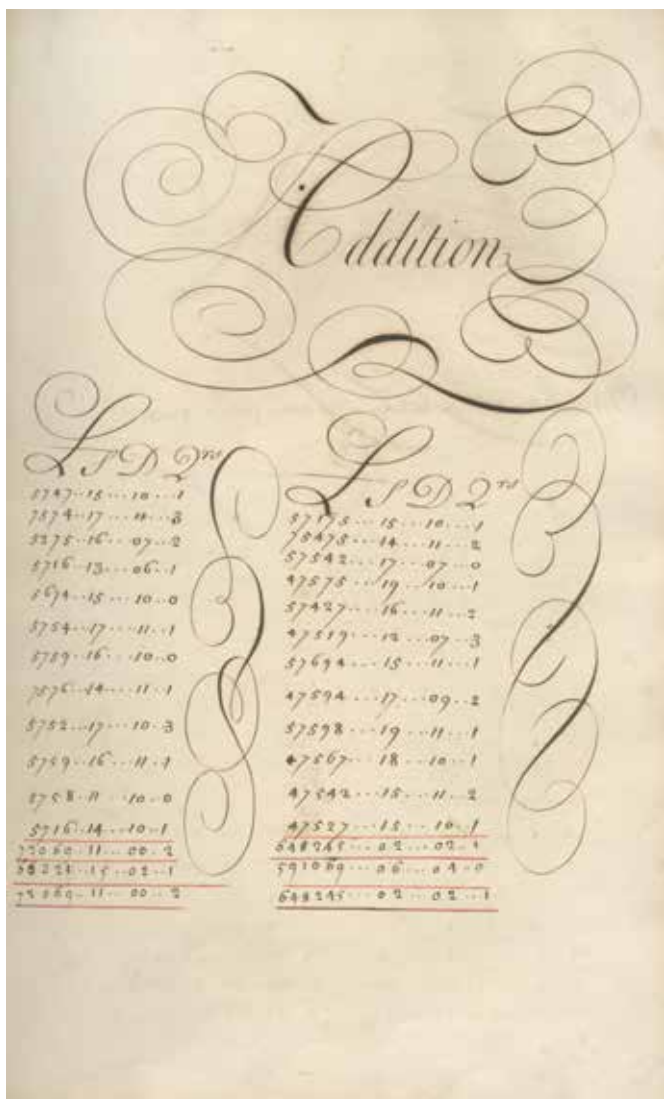 Addition
L S D Qrs
5747..15...10...1
7574..17...11...3
5275..16...07...2
5716..13...06..1
5674..15...10..0
5754..17...11..1
5759..16...10..0
7576..14...11..1
5752..17...10..3
5759..16...11..1
5758..11...10..0
5716..14...10..1
72069..11...00..2
66321..15...02..1
72069..11...00..2
L S D Qrs
57175...15...10...1
75475...14...11...2
57542...17...07...0
47575...19...10...1
57427...16...11...2
47519...12...07...3
57694...15...11...1
47594...17...09...2
57598...19...11...1
47567...18...10...1
47542...15...11...2
47527...15...10...1
648245...02...02...1
591069...06...04...0
648245...02...02...1